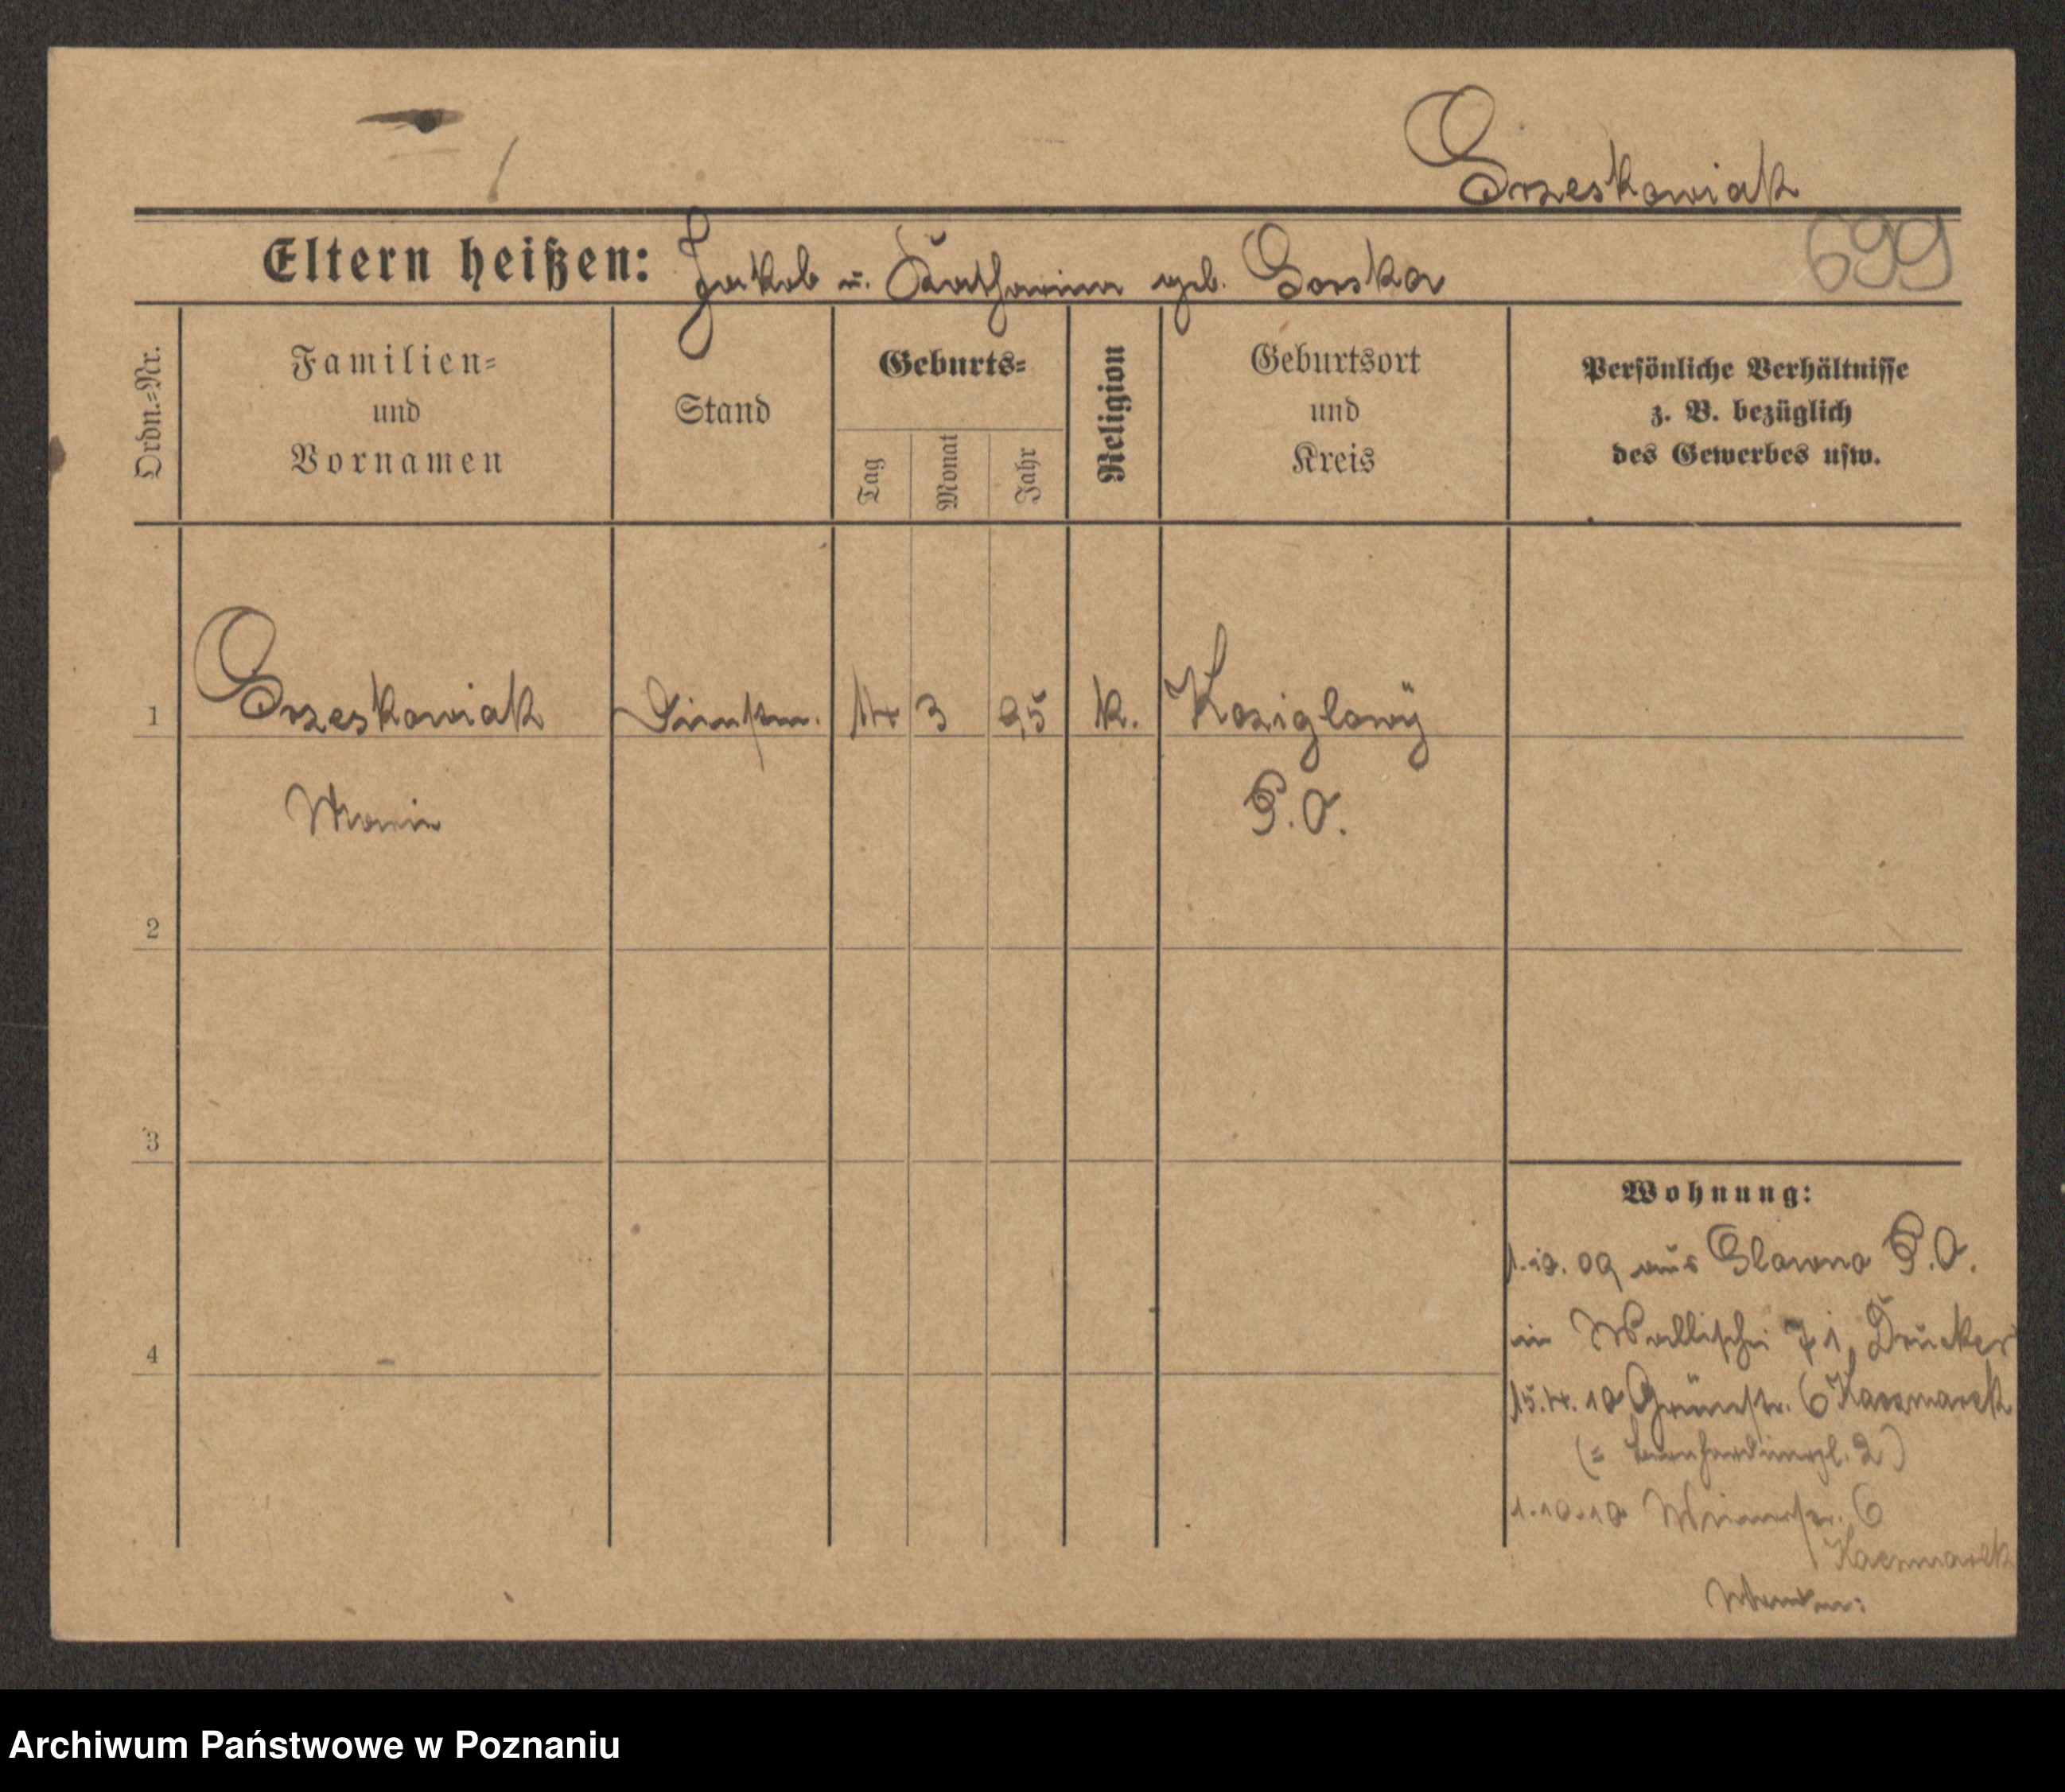 Grzeskowiak
699
Eltern heißen: Jakob u. Katharina geb. Gorska
Ordn.-Nr.
Familien=
und
Vornamen
Stand
Geburts=
Tag
Monat
Jahr
Religion
Geburtsort
und
Kreis
Persönliche Verhältnisse
z. B. bezüglich
des Gewerbes usw.
1 Grzeskowiak Dienstm. 14 3 95 k. Koziglowy
Marie P.O.
2
3
4
Wohnung:
1.10.09 aus Glowno P.O.
in Wallischei 71 Drucker
15.4.10 Grünstr. 6 Kaczmarek
(= Bernhardinerpl. 2)
1.10.10 6
Kaczmarek
Archiwum Państwowe w Poznaniu